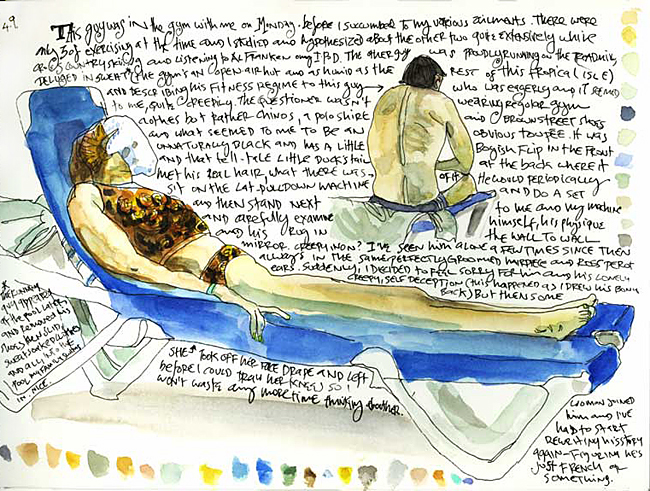 49
This guy was in the gym with me on Monday, before I succumbed to my various ailments. There were
only 3 of exercising at the time and I studied and hypothesized about the other two quite extensively while
country skiing and listening to Al Franken on my iPod. The other guy was proudly running on the treadmill
deluged in sweat (the gym's an open air hut and as humid as the rest of this tropical isle)
and describing his fitness regime to this guy who was eagerly and it seemed
to me, quite creepily. The questioner wasn't wearing regular gym
clothes but rather chinos, a polo shirt and brown street shoes
and what seemed to me to be an obvious toupée. It was
unnaturally black and has a little boyish flip in the front
and that tell-tale little duck's tail at the back where it
met his real hair, what there was of it. He would periodically
sit on the lat pulldown machine and do a set
and then stand next to me and my machine
and carefully examine himself, his physique
and his rug in the wall to wall
mirror. Creepy, non? I've seen him alone a few times since then
always in the same perfectly groomed hairpiece and Ross Perot
ears. Suddenly, I decided to feel sorry for him and his lonely
creepy self deception (this happened as I drew his bony
back) but then some
woman joined
him and I've
had to start
rewriting his story
again – figuring he's
just French or
something.
guy appeared
at the pool
and removed his
shoes,
and all
in
She took off her face drape and left
before I could draw her knees so I
won't waste any more time thinking about her.